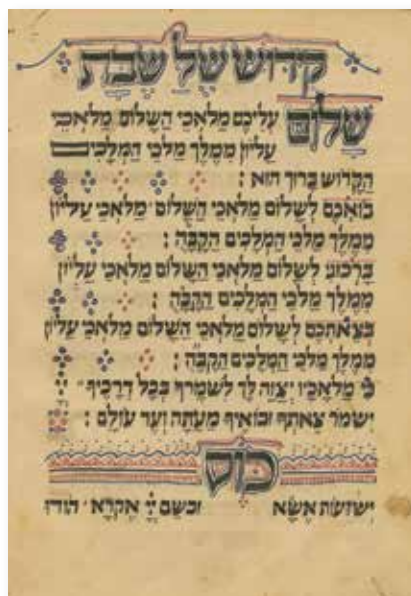 קִדּוּשׁ שֶׁל שַׁבָּת
שָׁלוֹם עֲלֵיכֶם מַלְאֲכֵי הַשָּׁלוֹם מַלְאֲכֵי
עֶלְיוֹן מִמֶּלֶךְ מַלְכֵי הַמְּלָכִים
הַקָּדוֹשׁ בָּרוּךְ הוּא :
בּוֹאֲכֶם לְשָׁלוֹם מַלְאֲכֵי הַשָּׁלוֹם מַלְאֲכֵי עֶלְיוֹן
מִמֶּלֶךְ מַלְכֵי הַמְּלָכִים הַקָּבָּה :
בָּרְכוּנִי לְשָׁלוֹם מַלְאֲכֵי הַשָּׁלוֹם מַלְאֲכֵי עֶלְיוֹן
מִמֶּלֶךְ מַלְכֵי הַמְּלָכִים הַקָּבָּה :
בְּצֵאתְכֶם לְשָׁלוֹם מַלְאֲכֵי הַשָּׁלוֹם מַלְאֲכֵי עֶלְיוֹן
מִמֶּלֶךְ מַלְכֵי הַמְּלָכִים הַקָּבָּה :
כִּי מַלְאָכָיו יְצַוֶּה לָךְ לִשְׁמָרְךָ בְּכָל דְּרָכֶיךָ יְיָ
יִשְׁמֹר צֵאתְךָ וּבוֹאֶיךָ מֵעַתָּה וְעַד עוֹלָם :
כּוֹס
יְשׁוּעוֹת אֶשָּׂא וּבְשֵׁם יְיָ אֶקְרָא הודו